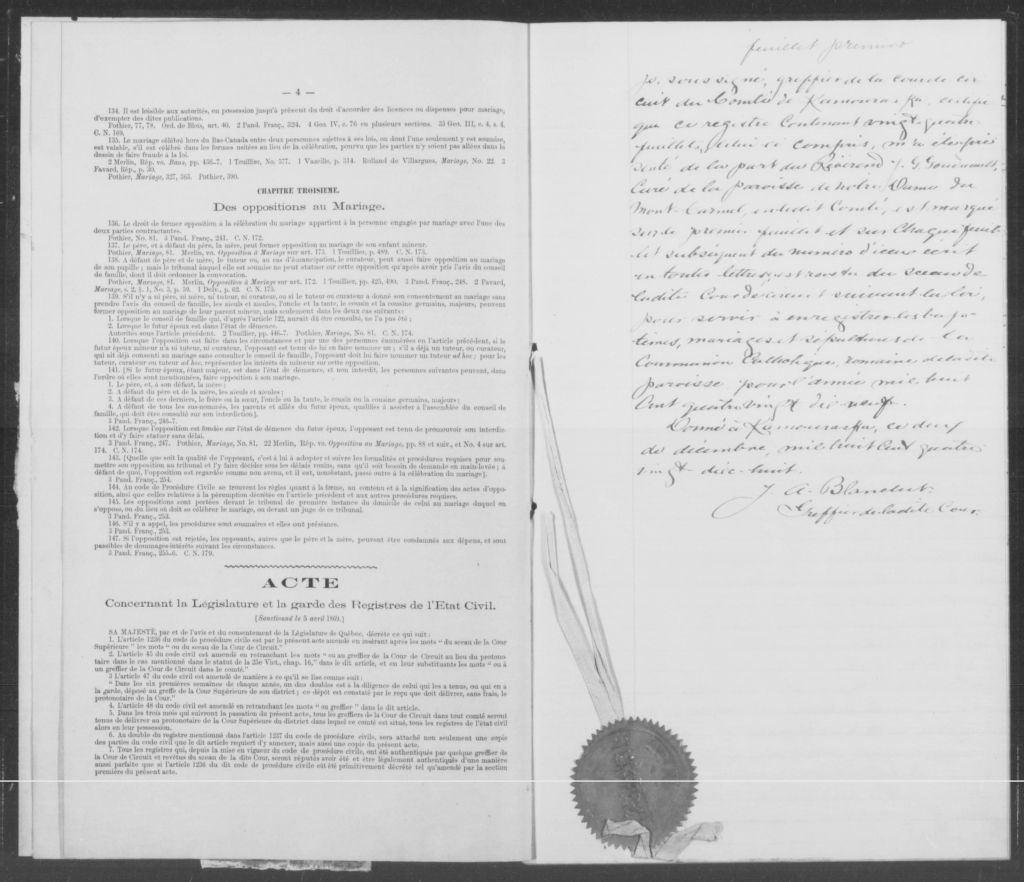 — 4 —
134. Il est loisible aux autorités, en possession jusqu'à présent du droit d'accorder des licences ou dispenses pour mariage,
d'exempter des dites publications.
Pothier, 77, 78. Ord. de Blois, art. 40. 2 Pand. Franç., 324. 4 Geo. IV, c. 76 en plusieurs sections. 35 Geo. III, c. 4, s. 4.
C. N. 169.
135. Le mariage célébré hors du Bas-Canada entre deux personnes sujettes à ses lois, ou dont l'une seulement y est soumise,
est valable, s'il est célébré dans les formes usitées au lieu de la célébration, pourvu que les parties n'y soient pas allées dans le
dessein de faire fraude à la loi.
2 Merlin, Rép. vo. Bans, pp. 436-7. 1 Toullier, No. 577. 1 Vazeille, p. 314. Rolland de Villargues, Mariage, No. 22. 3
Favard, Rép., p. 39.
Pothier, Mariage, 327, 363. Pothier, 390.
CHAPITRE TROISIEME.
Des oppositions au Mariage.
136. Le droit de former opposition à la célébration du mariage appartient à la personne engagée par mariage avec l'une des
deux parties contractantes.
Pothier, No. 81. 3 Pand. Franç., 241. C. N. 172.
137. Le père, et à défaut du père, la mère, peut former opposition au mariage de son enfant mineur.
Pothier, Mariage, 81. Merlin, vo. Opposition à Mariage sur art. 173. 1 Toullier, p. 489. C. N. 173.
138. A défaut de père et de mère, le tuteur ou, au cas d'émancipation, le curateur, peut aussi faire opposition au mariage
de son pupille; mais le tribunal auquel elle est soumise ne peut statuer sur cette opposition qu'après avoir pris l'avis du conseil
de famille, dont il doit ordonner la convocation.
Pothier, Mariage, 81. Merlin, Opposition à Mariage sur art. 172. 1 Toullier, pp. 425, 490. 3 Pand. Franç., 248. 2 Favard,
Mariage, s. 2, § 1, No. 3, p. 59. 1 Delv., p. 62. C. N. 175.
139. S'il n'y a ni père, ni mère, ni tuteur, ni curateur, ou si le tuteur ou curateur a donné son consentement au mariage sans
prendre l'avis du conseil de famille, les aïeuls et aïeules, l'oncle et la tante, le cousin et la cousine germains, majeurs, peuvent
former opposition au mariage de leur parent mineur, mais seulement dans les deux cas suivants:
1. Lorsque le conseil de famille qui, d'après l'article 122, aurait dû être consulté, ne l'a pas été;
2. Lorsque le futur époux est dans l'état de démence.
Autorités sous l'article précédent. 2 Toullier, pp. 446-7. Pothier, Mariage, No. 81. C. N. 174.
140. Lorsque l'opposition est faite dans les circonstances et par une des personnes énumérées en l'article précédent, si le
futur époux mineur n'a ni tuteur, ni curateur, l'opposant est tenu de lui en faire nommer un; s'il a déjà un tuteur, ou curateur,
qui ait déjà consenti au mariage sans consulter le conseil de famille, l'opposant doit lui faire nommer un tuteur ad hoc; pour les
tuteur, curateur ou tuteur ad hoc, représenter les intérêts du mineur sur cette opposition.
141. [Si le futur époux, étant majeur, est dans l'état de démence, et non interdit, les personnes suivantes peuvent, dans
l'ordre où elles sont mentionnées, faire opposition à son mariage.
1. Le père, et, à son défaut, la mère;
2. A défaut du père et de la mère, les aïeuls et aïeules;
3. A défaut de ces derniers, le frère ou la sœur, l'oncle ou la tante, le cousin ou la cousine germains, majeurs;
4. A défaut de tous les sus-nommés, les parents et alliés du futur époux, qualifiés à assister à l'assemblée du conseil de
famille, qui doit être consulté sur son interdiction].
3 Pand. Franç., 246-7.
142. Lorsque l'opposition est fondée sur l'état de démence du futur époux, l'opposant est tenu de promouvoir son interdic-
tion et d'y faire statuer sans délai.
3 Pand. Franç., 247. Pothier, Mariage, No. 81. 22 Merlin, Rép. vo. Opposition au Mariage, pp. 88 et suiv., et No. 4 sur art.
174. C. N. 174.
143. [Quelle que soit la qualité de l'opposant, c'est à lui à adopter et suivre les formalités et procédures requises pour sou-
mettre son opposition au tribunal et l'y faire décider sous les délais voulus, sans qu'il soit besoin de demande en main-levée; à
défaut de quoi, l'opposition est regardée comme non avenu, et il est, nonobstant, passé outre à la célébration du mariage].
3 Pand. Franç., 254.
144. Au code de Procédure Civile se trouvent les règles quant à la forme, au contenu et à la signification des actes d'oppo-
sition, ainsi que celles relatives à la péremption décrétée en l'article précédent et aux autres procédures requises.
145. Les oppositions sont portées devant le tribunal de première instance du domicile de celui au mariage duquel on
s'oppose, ou du lieu où doit se célébrer le mariage, ou devant un juge de ce tribunal.
3 Pand. Franç., 253.
146. S'il y a appel, les procédures sont sommaires et elles ont préséance.
3 Pand. Franç., 253.
147. Si l'opposition est rejetée, les opposants, autres que le père et la mère, peuvent être condamnés aux dépens, et sont
passibles de dommages-intérêts suivant les circonstances.
3 Pand. Franç., 255-6. C. N. 179.
ACTE
Concernant la Législature et la garde des Registres de l'Etat Civil.
[Sanctionné le 5 avril 1869.]
SA MAJESTÉ, par et de l'avis et du consentement de la Législature de Québec, décrète ce qui suit:
1. L'article 1236 du code de procédure civile est par le présent acte amendé en insérant après les mots "du sceau de la Cour
Supérieure" les mots "ou du sceau de la Cour de Circuit."
2. L'article 45 du code civil est amendé en retranchant les mots "ou au greffier de la Cour de Circuit au lieu du protono-
taire dans le cas mentionné dans le statut de la 25e Vict., chap. 16," dans le dit article, et en leur substituant les mots "ou à
un greffier de la Cour de Circuit dans le comté."
3 L'article 47 du code civil est amendé de manière à ce qu'il se lise comme suit:
"Dans les six premières semaines de chaque année, un des doubles est à la diligence de celui qui les a tenus, ou qui en a
la garde, déposé au greffe de la Cour Supérieure de son district; ce dépôt est constaté par le reçu que doit délivrer, sans frais, le
protonotaire de la Cour."
4. L'article 48 du code civil est amendé en retranchant les mots "ou greffier" dans le dit article.
5. Dans les trois mois qui suivront la passation du présent acte, tous les greffiers de la Cour de Circuit dans tout comté seront
tenus de délivrer au protonotaire de la Cour Supérieure du district dans lequel ce comté est situé, tous les registres de l'état civil
alors en leur possession.
6. Au double du registre mentionné dans l'article 1237 du code de procédure civile, sera attaché non seulement une copie
des parties du code civil que le dit article requiert d'y annexer, mais aussi une copie du présent acte.
7. Tous les registres qui, depuis la mise en vigueur du code de procédure civile, ont été authentiqués par quelque greffier de
la Cour de Circuit et revêtus du sceau de la dite Cour, seront réputés avoir été et être légalement authentiqués d'une manière
aussi parfaite que si l'article 1236 du dit code de procédure civile eût été primitivement décrété tel qu'amendé par la section
première du présent acte.
feuillet premier
Je, soussigné, greffier de la cour de cir
cuit du Comté de Kamouraska, certifie
que ce registre contenant vingt-quatre
feuillets, celui ci compris, m'a été pré
senté de la part du Révérend J. G.
Curé de la paroisse de Notre Dame du
Mont Carmel, en ledit Comté, est marqué
sur le premier feuillet et sur chaque feuil
let subséquent du numéro d'iceux écrit
en toutes lettres et revêtu du sceau de
la dite Cour de circuit suivant la loi,
pour servir à enregistrer les bap-
têmes, mariages et sépultures de la
Communion Catholique romaine de la dite
paroisse pour l'année mil huit
cent quatre vingt dix neuf.
Donné à Kamouraska, ce deux
de décembre, mil huit cent quatre
vingt-dix-huit.
J. A. Blanchet
Greffier de la dite Cour.